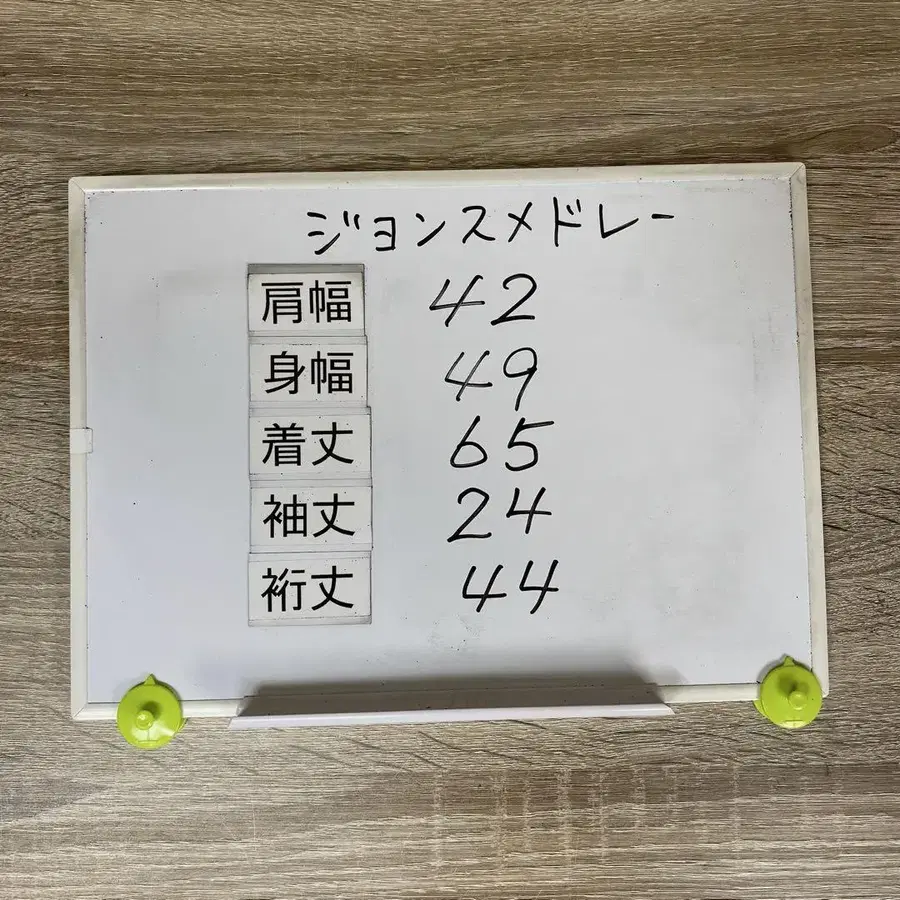 ジョンスメドレー
肩幅 42
身幅 49
着丈 65
袖丈 24
裄丈 44